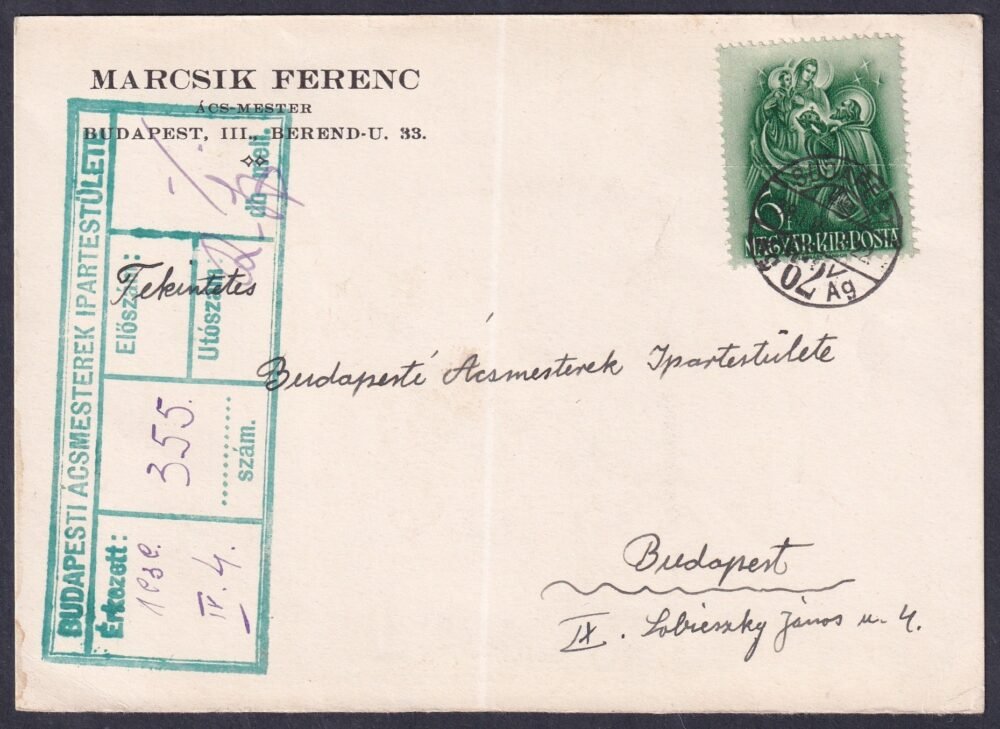 MARCSIK FERENC
ÁCS-MESTER
BUDAPEST, III., BEREND-U. 33.
6f
MAGYAR·KIR·POSTA
BUDAPESTI ÁCSMESTEREK IPARTESTÜLETE
Érkezett:
IV. 4.
355.
szám.
Előszám:
Utószám:
db mell.
Tekintetes
Budapesti Ácsmesterek Ipartestülete
Budapest
IX. Sobieszky János u. 4.